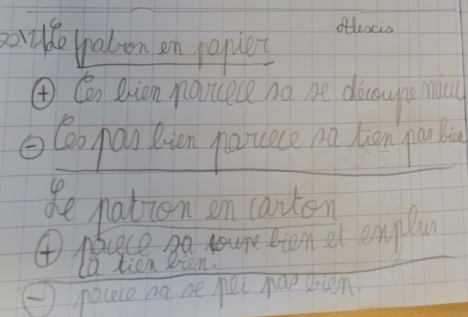 Alexis
Le patron en papier
+ Ces bien parcece sa se découpe mieu
- Ces pas bien parcece sa tien pas bien
Le patron en carton
+ parcece sa coupe bien et enplus
sa tien bien.
- parcece sa se pli pas bien.